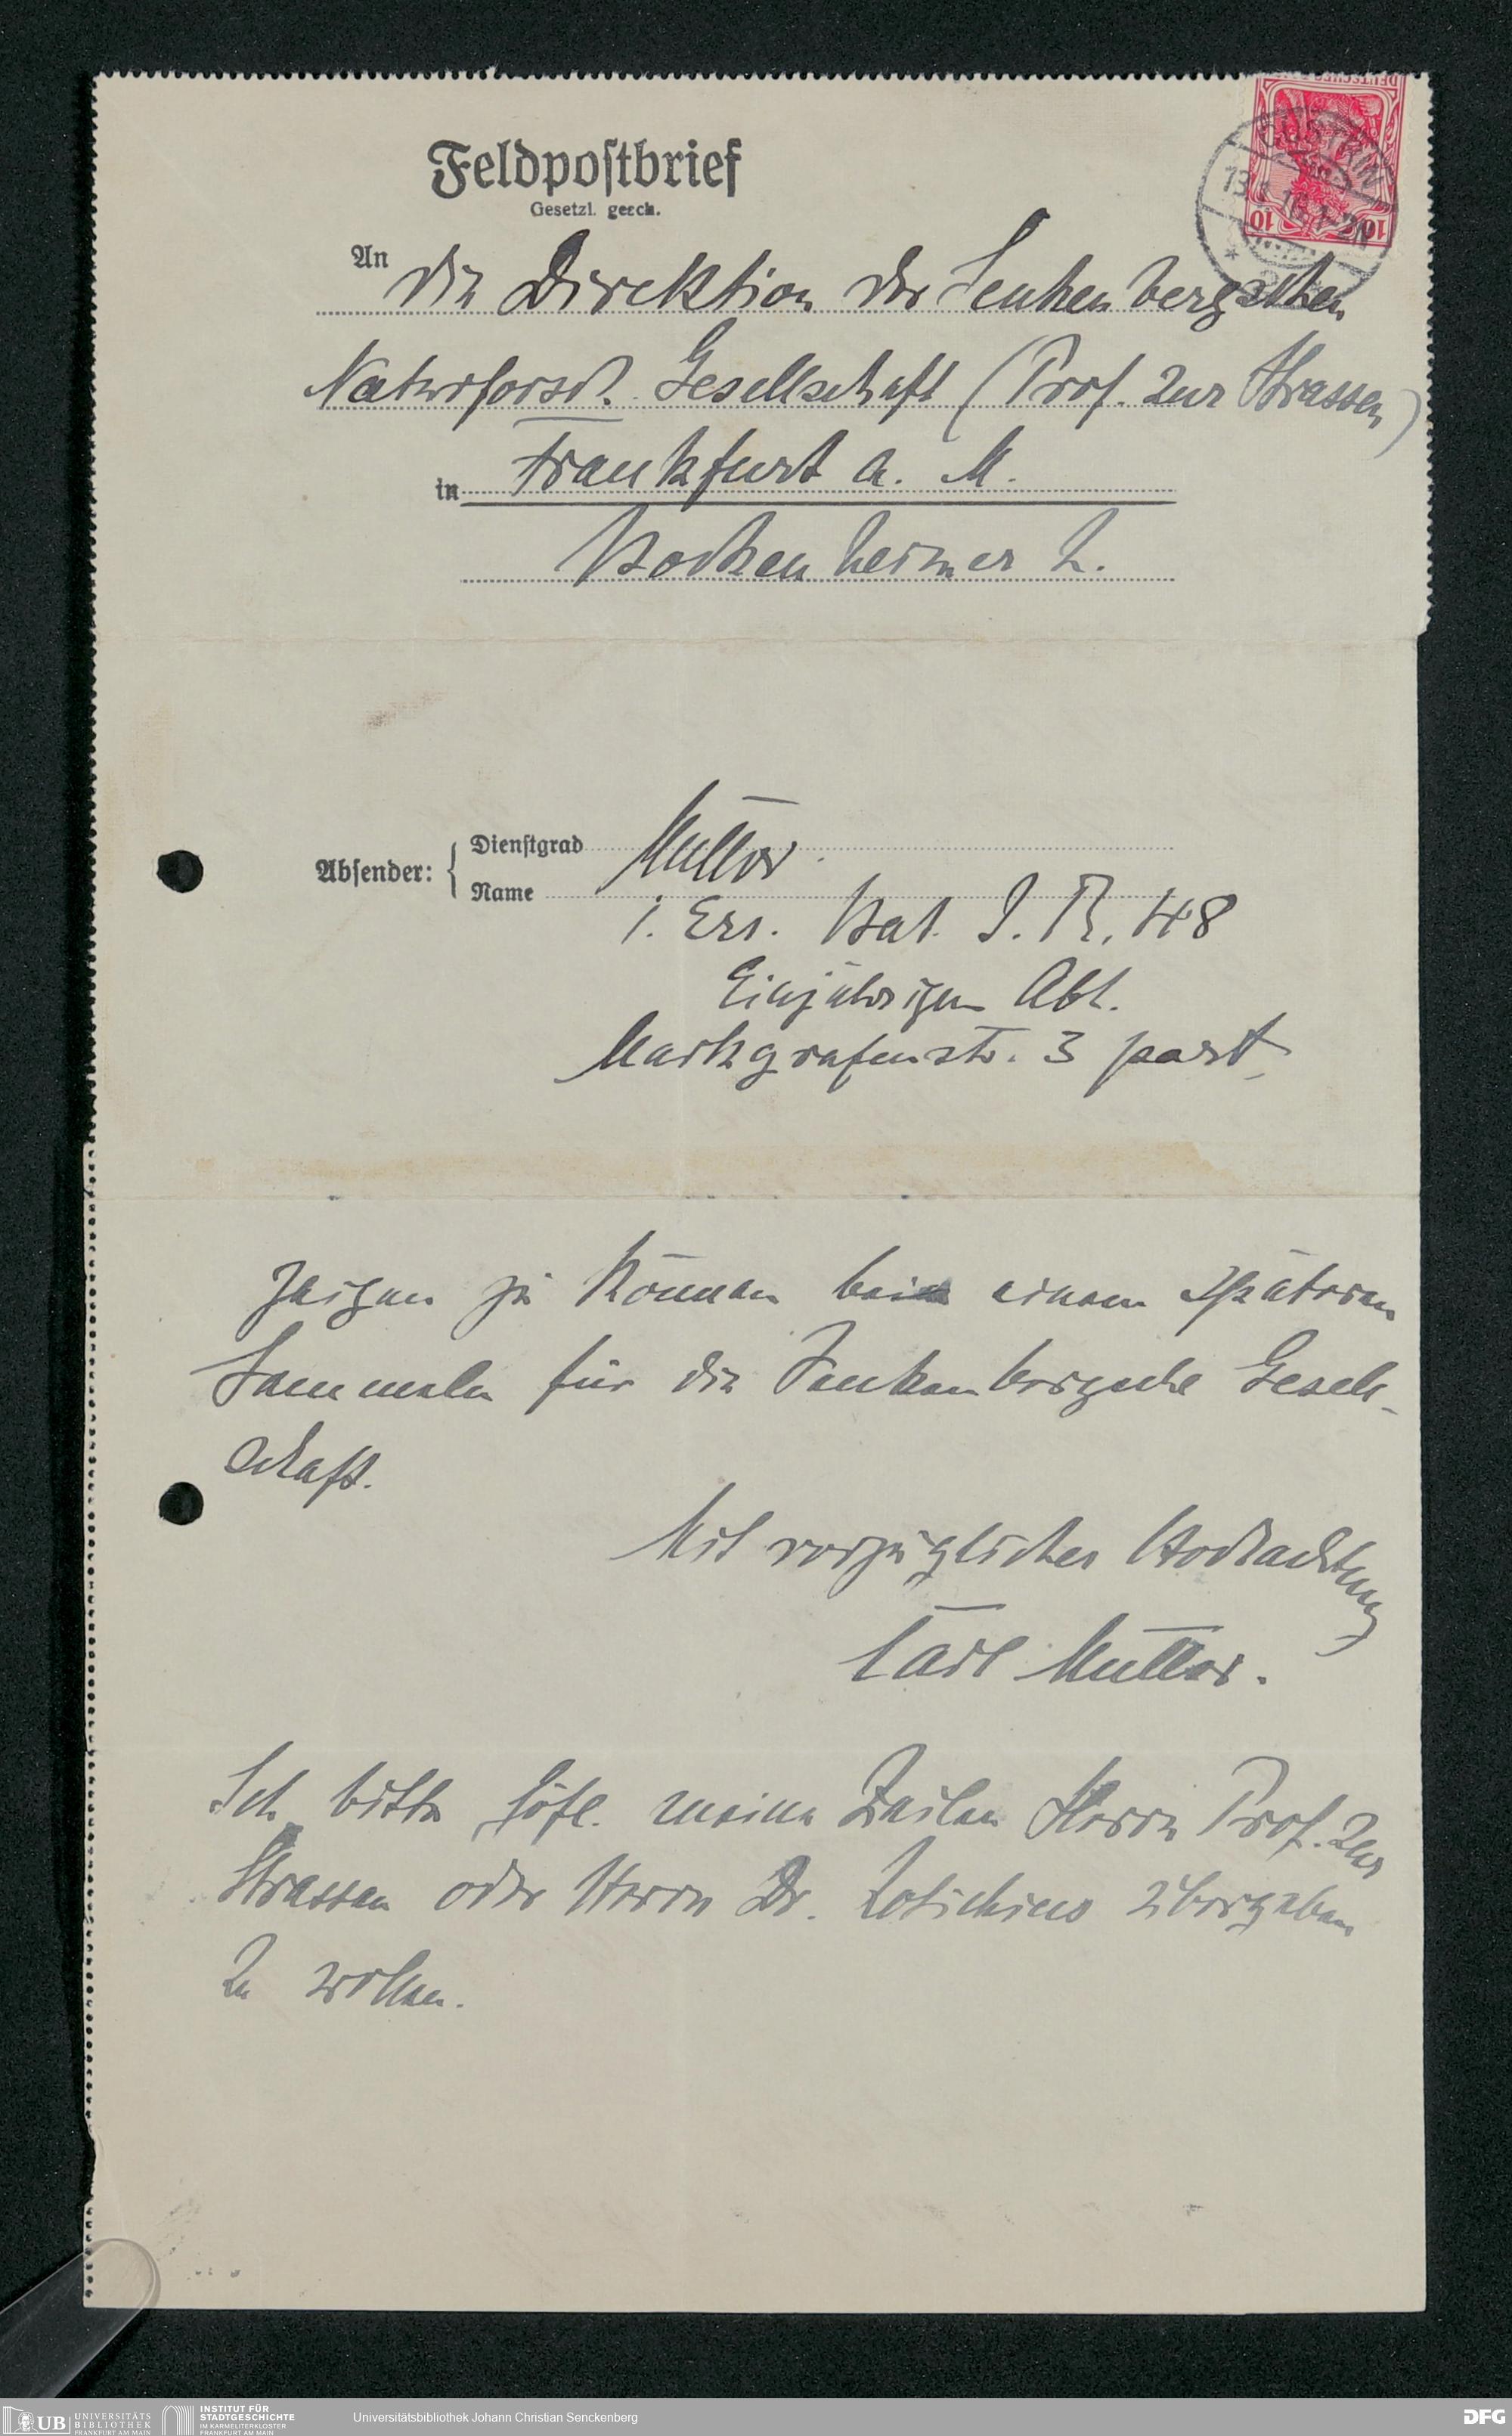 Feldpostbrief
Gesetzl. gesch.
An die Direktion der Senkenbergschen
Naturforsch. Gesellschaft (Prof. Zur Strassen)
in Frankfurt a. M.
Bockenheimer L.
DEUTSCHES
CÜSTRIN
10 10
Absender: { Dienstgrad
Name
Müller
1. Ers. Bat. I. R. 48
Einjährigen Abt.
Markgrafenstr. 3 part.
zeigen zu können bei einem späteren
Sammeln für die Senkenbergsche Gesell-
schaft.
Mit vorzüglicher Hochachtung
Carl Müller.
Ich bitte höfl. meine Zeilen Herrn Prof. Zur
Strassen oder Herrn Dr. übergeben
zu wollen.
UB UNIVERSITÄTS
BIBLIOTHEK
FRANKFURT AM MAIN
INSTITUT FÜR
STADTGESCHICHTE
IM KARMELITERKLOSTER
FRANKFURT AM MAIN
Universitätsbibliothek Johann Christian Senckenberg
DFG